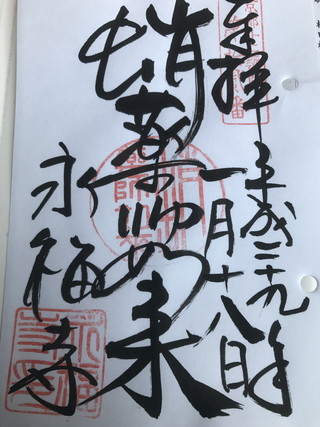 奉拝
平成二十九年
一月十八日
蛸薬師如来
永福寺